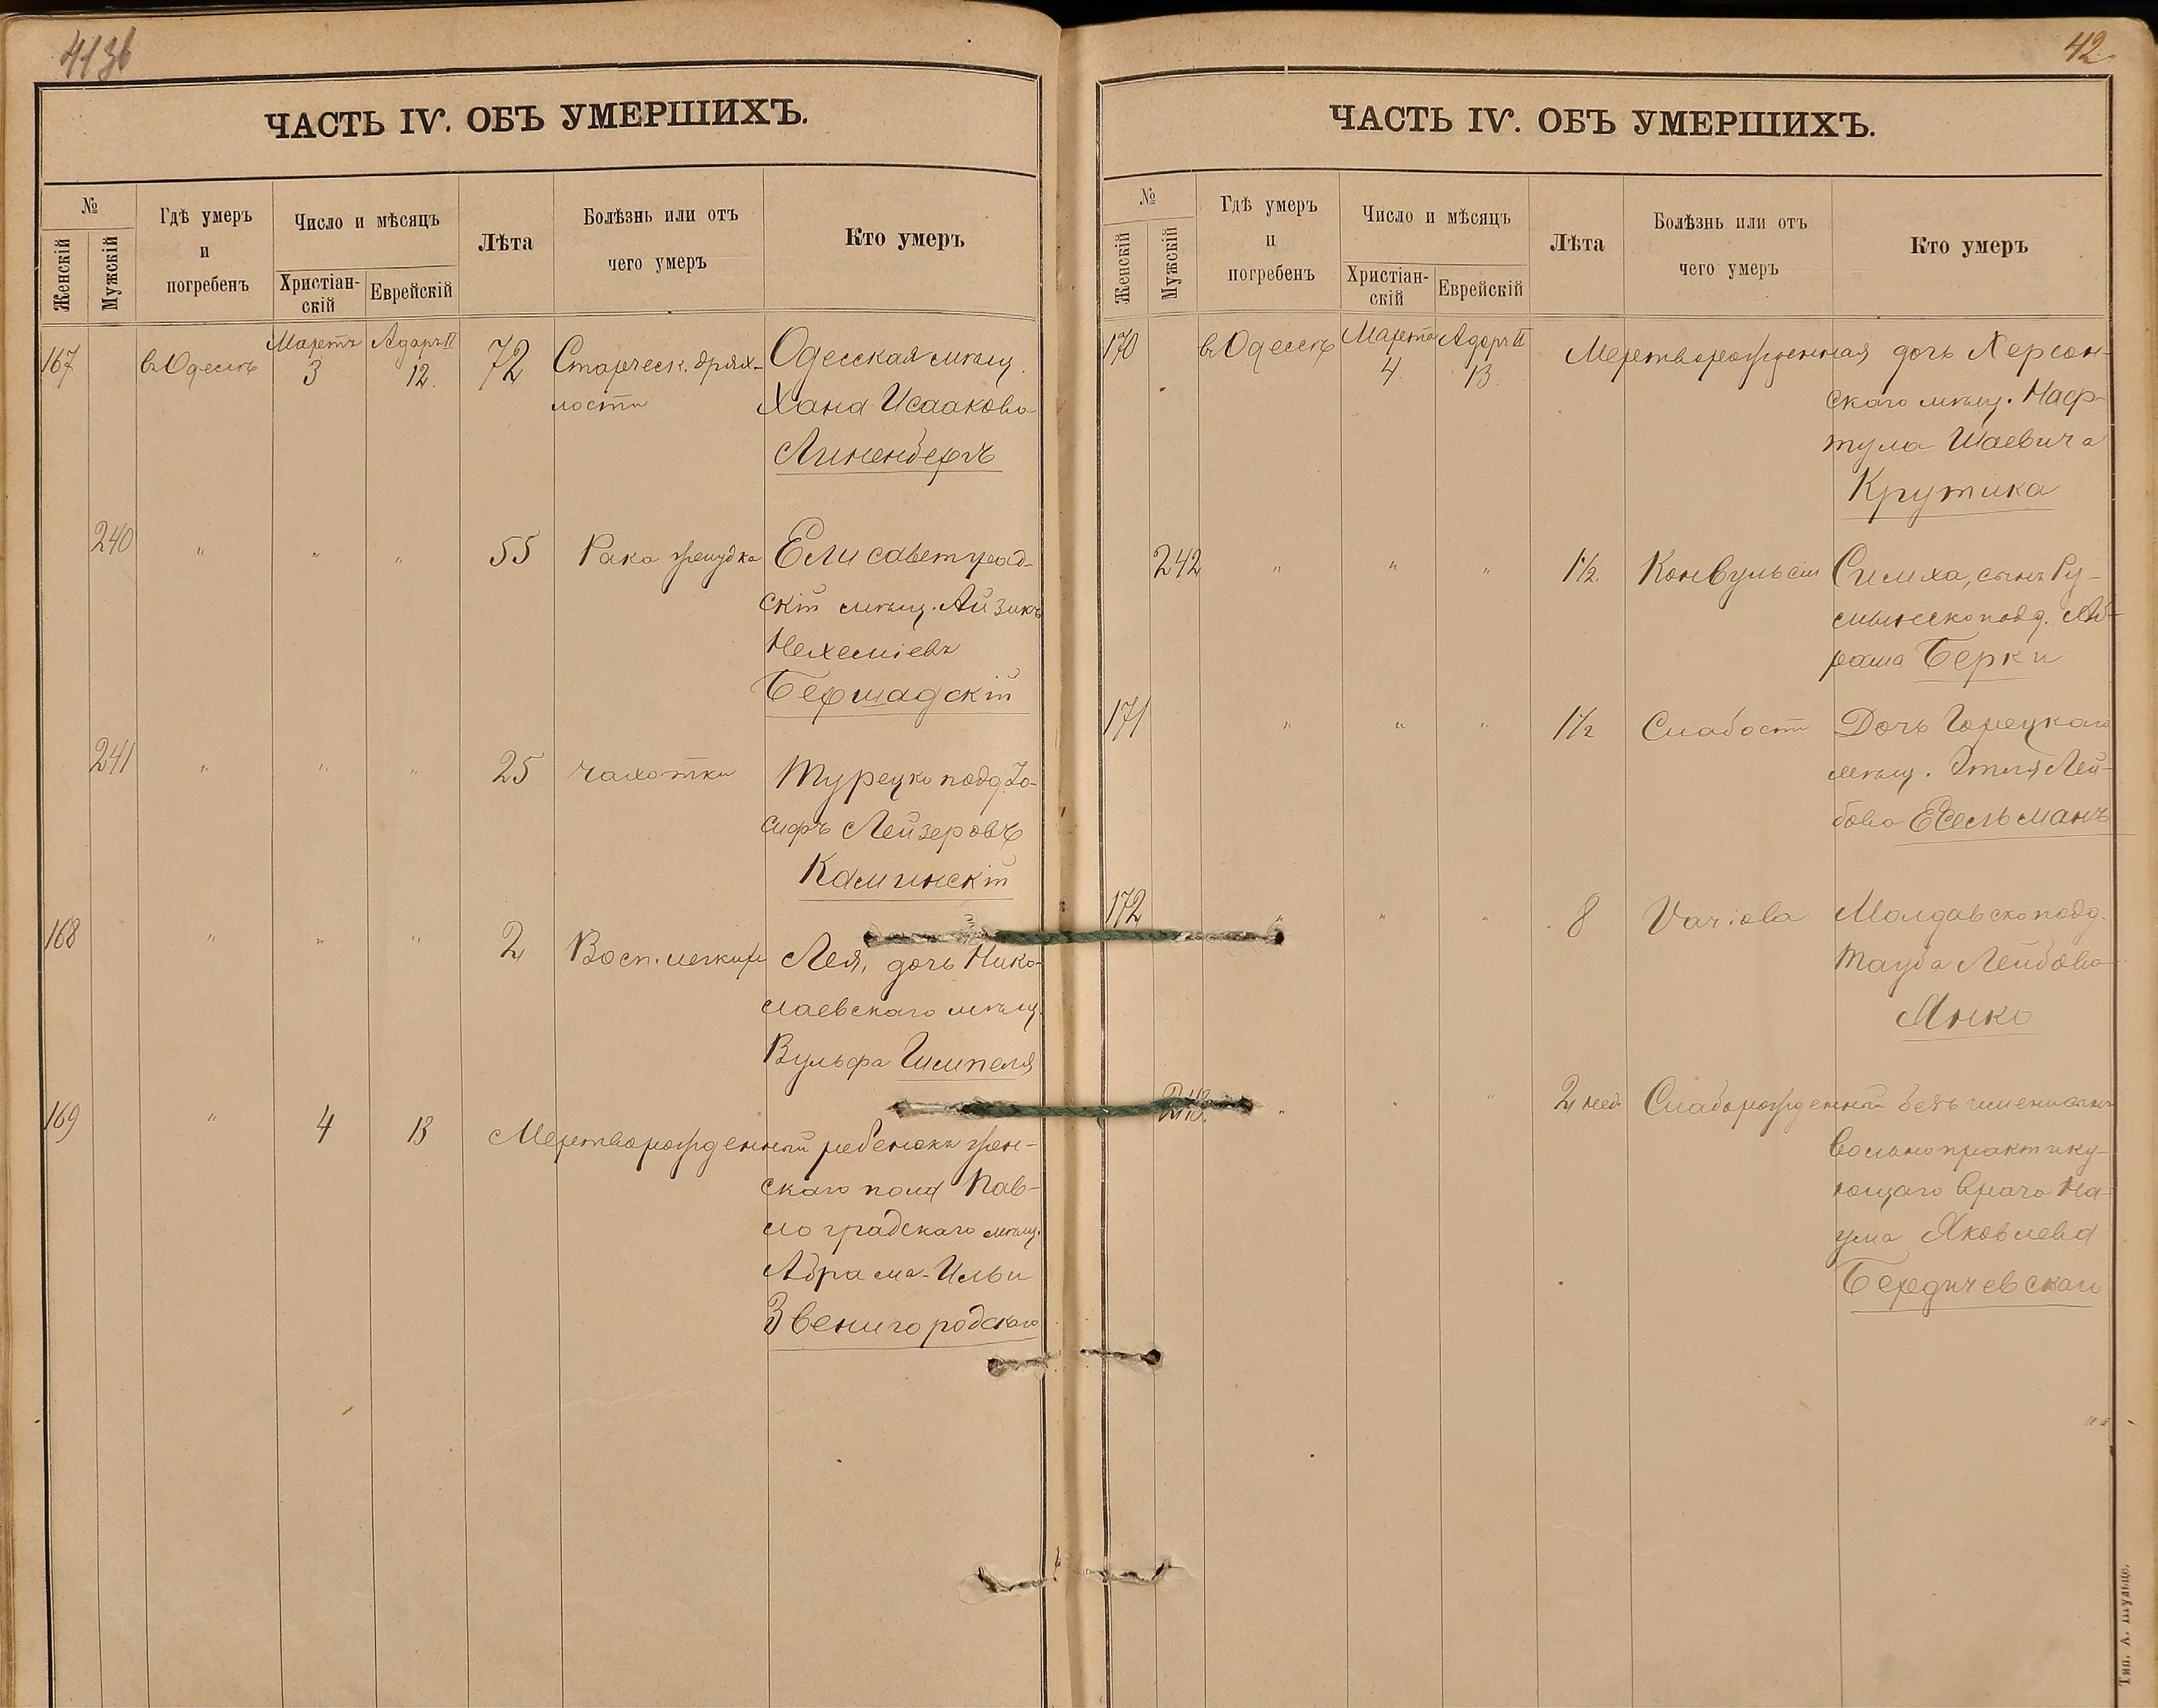 4136
ЧАСТЬ IV. ОБЪ УМЕРШИХЪ.
№
Женскій
Мужскій
Гдѣ умеръ
и
погребенъ
Число и мѣсяцъ
Христіан-
скій
Еврейскій
Лѣта
Болѣзнь или отъ
чего умеръ
Кто умеръ
167 въ Одессѣ Мартъ 3 Адаръ II 12. 72 Старческ. дрях- Одесская мѣщ.
лости Хана Исаакова
Линенбергъ
240 " " " 55 Рака желудка Елисаветград-
скій мѣщ. Айзикъ
Нехеміевъ
Бершадскій
241 " " " 25 чахотки Турецко подд. Іо-
сифъ Лейзеровъ
Каминскій
168 " " " 2 Восп. легкихъ Лея, дочь Нико-
лаевскаго мѣщ.
Вульфа Гимпеля
169 " 4 13 Мертворожденный ребенокъ жен-
скаго пола Пав-
лоградскаго мѣщ.
Абрама-Ильи
Звенигородскаго
42
ЧАСТЬ IV. ОБЪ УМЕРШИХЪ.
№
Женскій
Мужскій
Гдѣ умеръ
и
погребенъ
Число и мѣсяцъ
Христіан-
скій
Еврейскій
Лѣта
Болѣзнь или отъ
чего умеръ
Кто умеръ
170 въ Одессѣ Марта 4. Адаръ II 13. Мертворожденная дочь Херсон-
скаго мѣщ. Наф-
тула Шаевича
Крутика
242 " " " 1½. Конвульсіи Симха, сынъ Ру-
мынскоподд. Аб-
рама Берки
171 " " " 1½ Слабости Дочь Горецкаго
мѣщ. Этля Лей-
бова Есельманъ
172 " " " 8 Variola Молдавскоподд.
Тауба Лейбова
Янко
243. " " " 2 нед. Слаборожденный безъ имени сынъ
вольнопрактику-
ющаго врача На-
ума Яковлева
Бердичевскаго
Тип. А. Шульце.